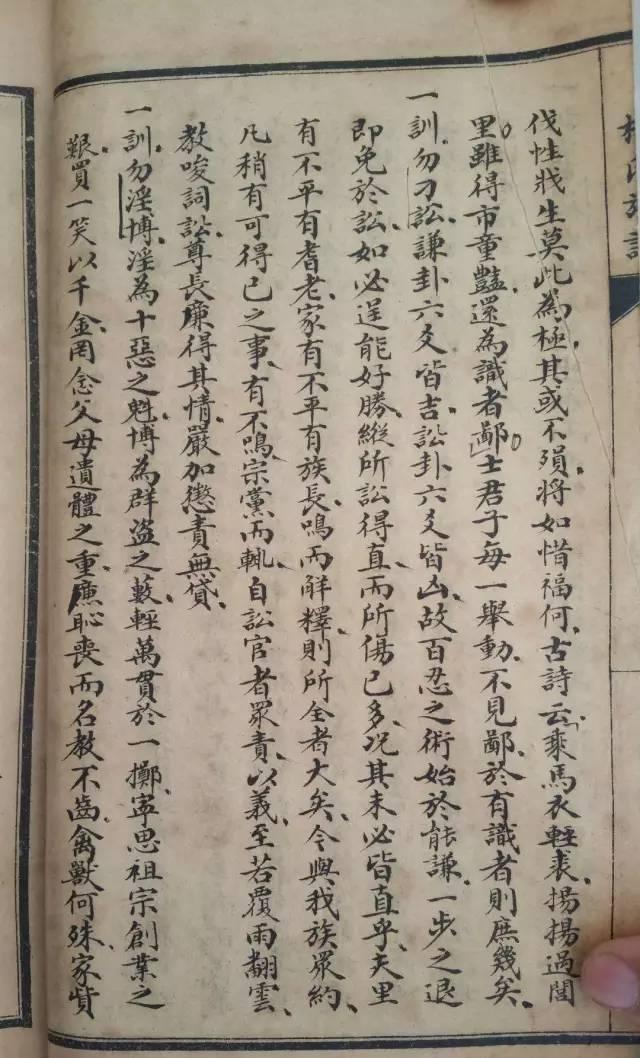 伐性戕生莫此為極其或不殞將如惜福何古詩云乘馬衣輕裘揚揚過閭
里雖得市童豔還為識者鄙士君子每一舉動不見鄙於有識者則庶幾矣
一訓勿刁訟謙卦六爻皆吉訟卦六爻皆凶故百忍之術始於能謙一步之退
即免於訟如必逞能好勝縱所訟得直而所傷已多况其未必皆直乎夫里
有不平有耆老家有不平有族長鳴而解釋則所全者大矣今與我族眾約
凡稍有可得已之事有不鳴宗黨而輒自訟官者眾責以義至若覆雨翻雲
教唆詞訟尊長廉得其情嚴加懲責無貸
一訓勿淫博淫為十惡之魁博為群盜之藪輕萬貫於一擲寧思祖宗創業之
艱買一笑以千金罔念父母遺體之重廉恥喪而名教不齒禽獸何殊家貲